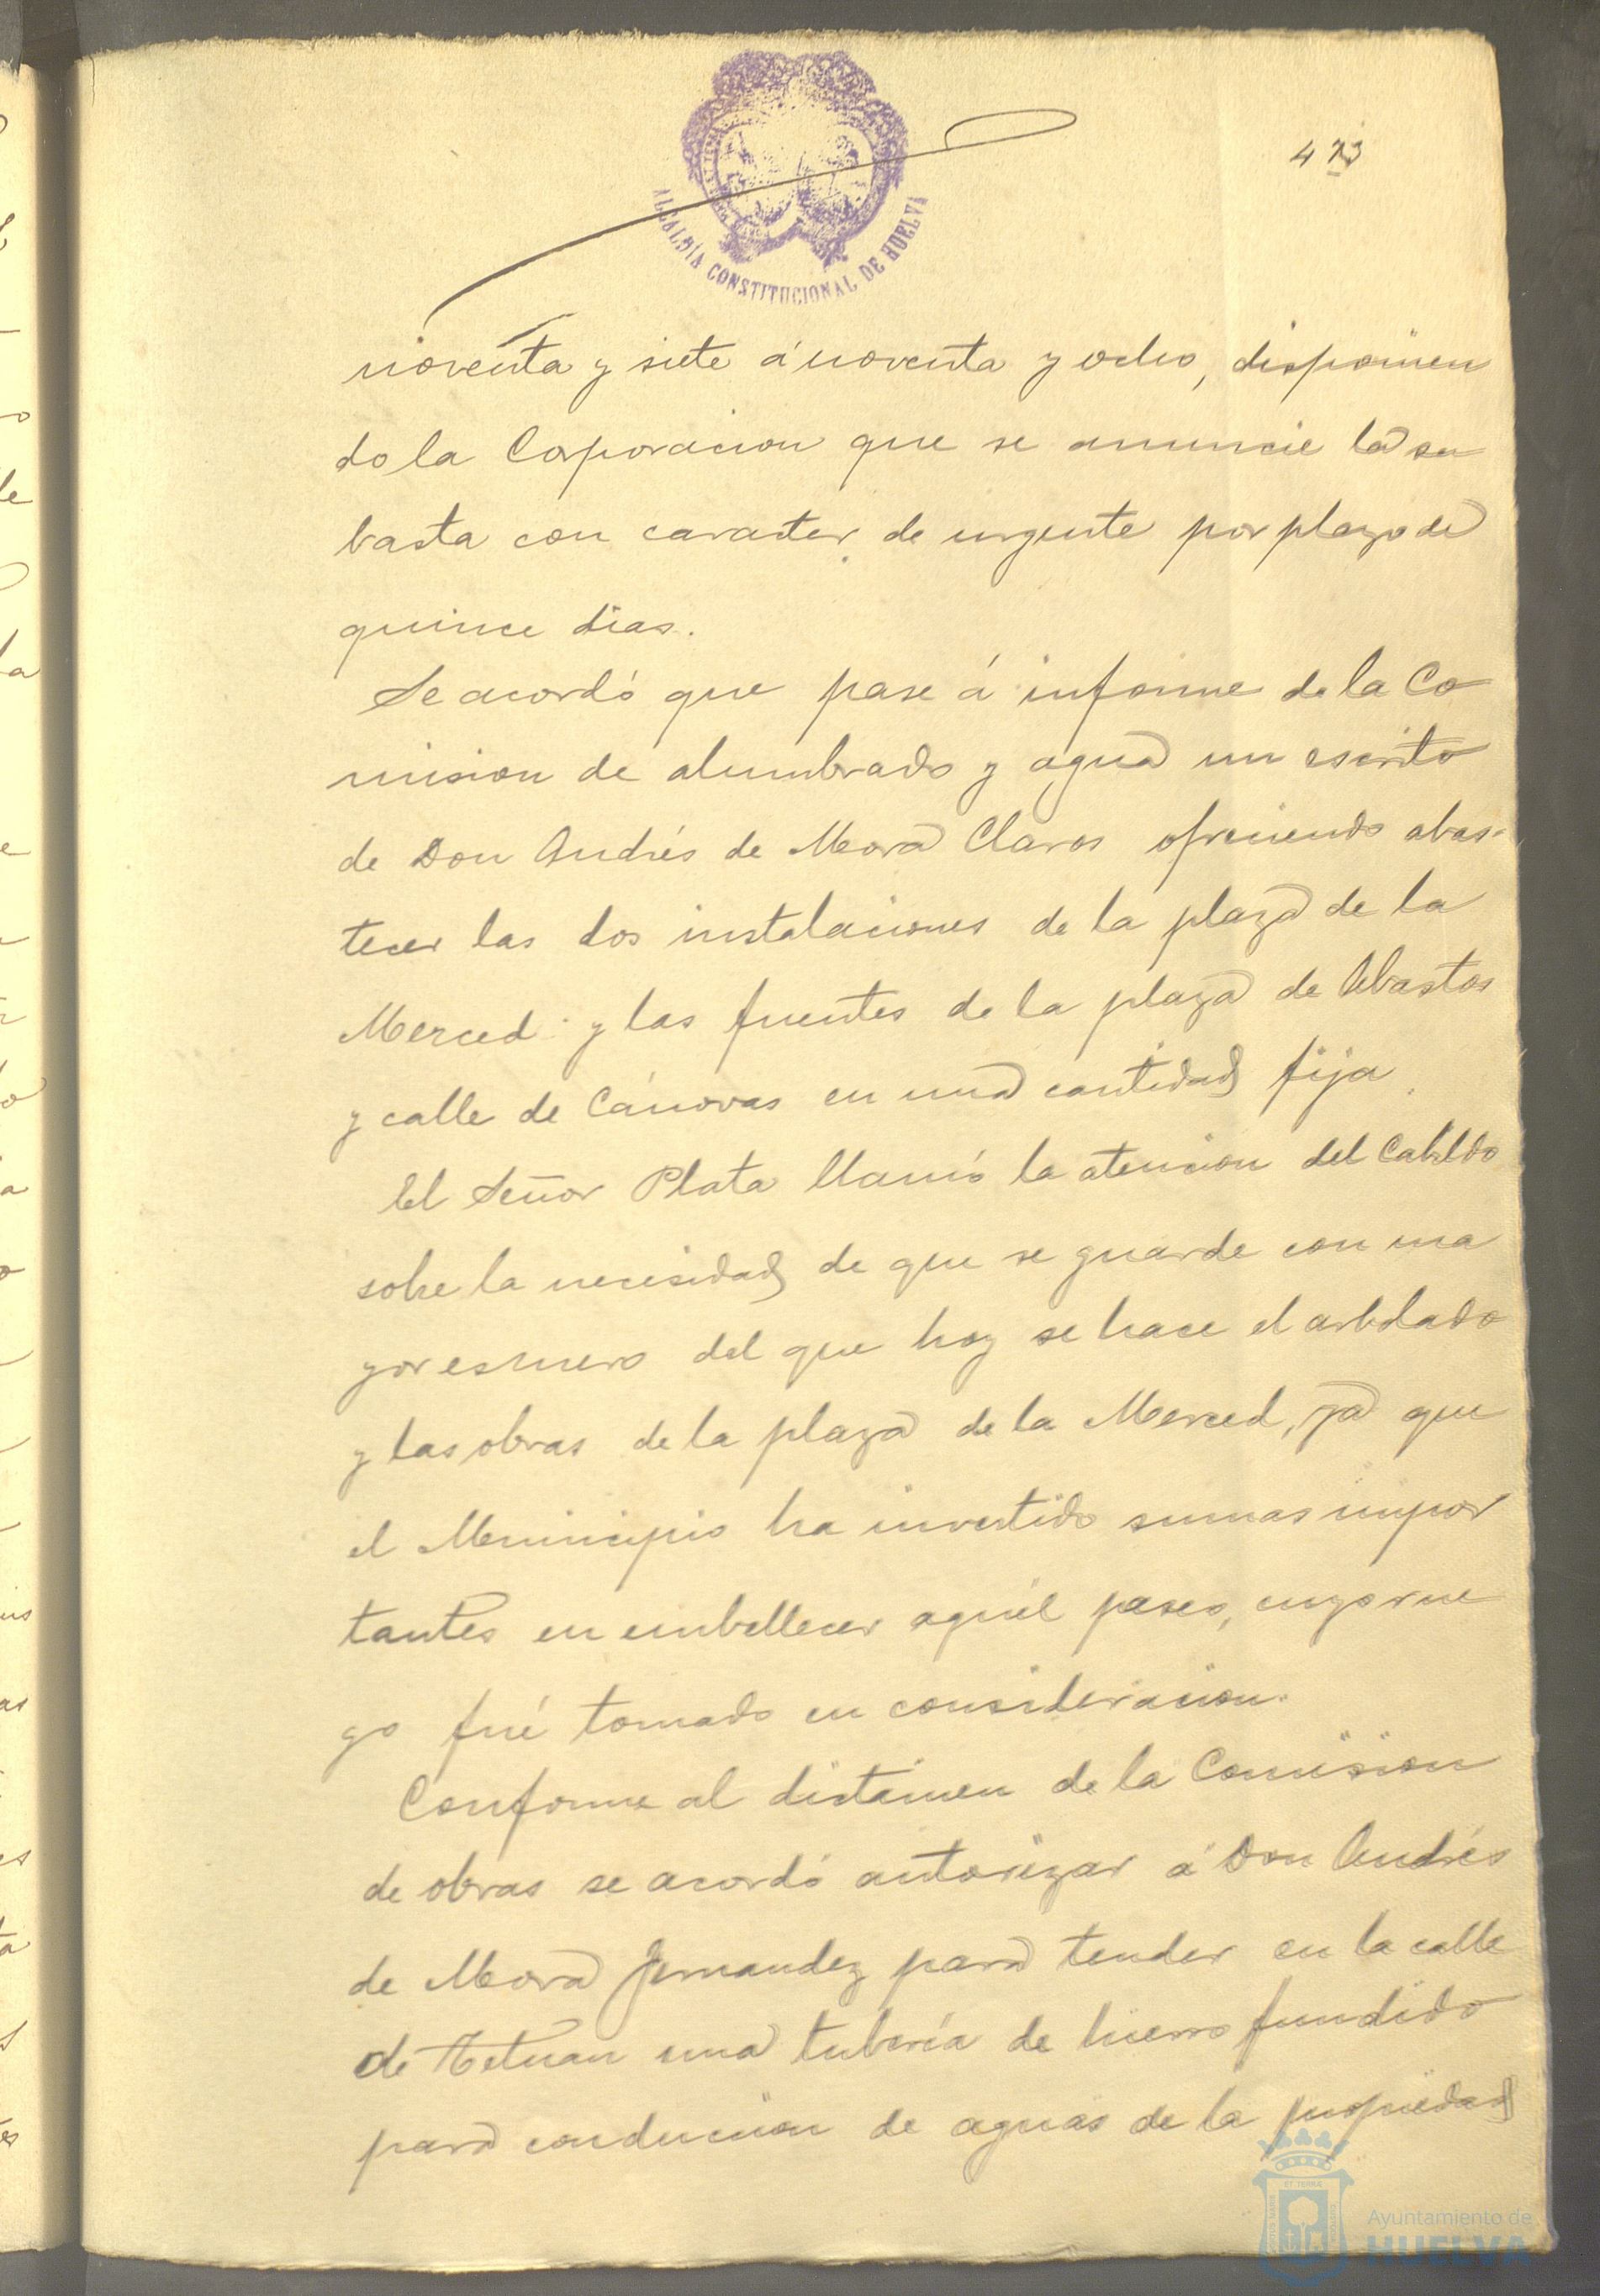 473
ALCALDÍA CONSTITUCIONAL DE HUELVA
noventa y siete á noventa y ocho, disponien
do la Corporacion que se anuncie la su
basta con caracter de urgente por plazo de
quince dias.
Se acordó que pase á informe de la Co
mision de alumbrado y agua un escrito
de Don Andrés de Mora Claros ofreciendo abas-
tecer las dos instalaciones de la plaza de la
Merced y las fuentes de la plaza de Abastos
y calle de Cánovas en una cantidad fija.
El Señor Plata llamó la atencion del Cabildo
sobre la necesidad de que se guarde con ma
yor esmero del que hoy se hace el arbolado
y las obras de la plaza de la Merced, ya que
el Municipio ha invertido sumas impor
tantes en embellecer aquél paseo, cuyo rue
go fué tomado en consideracion.
Conforme al dictámen de la Comision
de obras se acordó autorizar á Don Andrés
de Mora Fernandez para tender en la calle
de Tetuan una tubería de hierro fundido
para conduccion de aguas de la propiedad
Ayuntamiento de
HUELVA